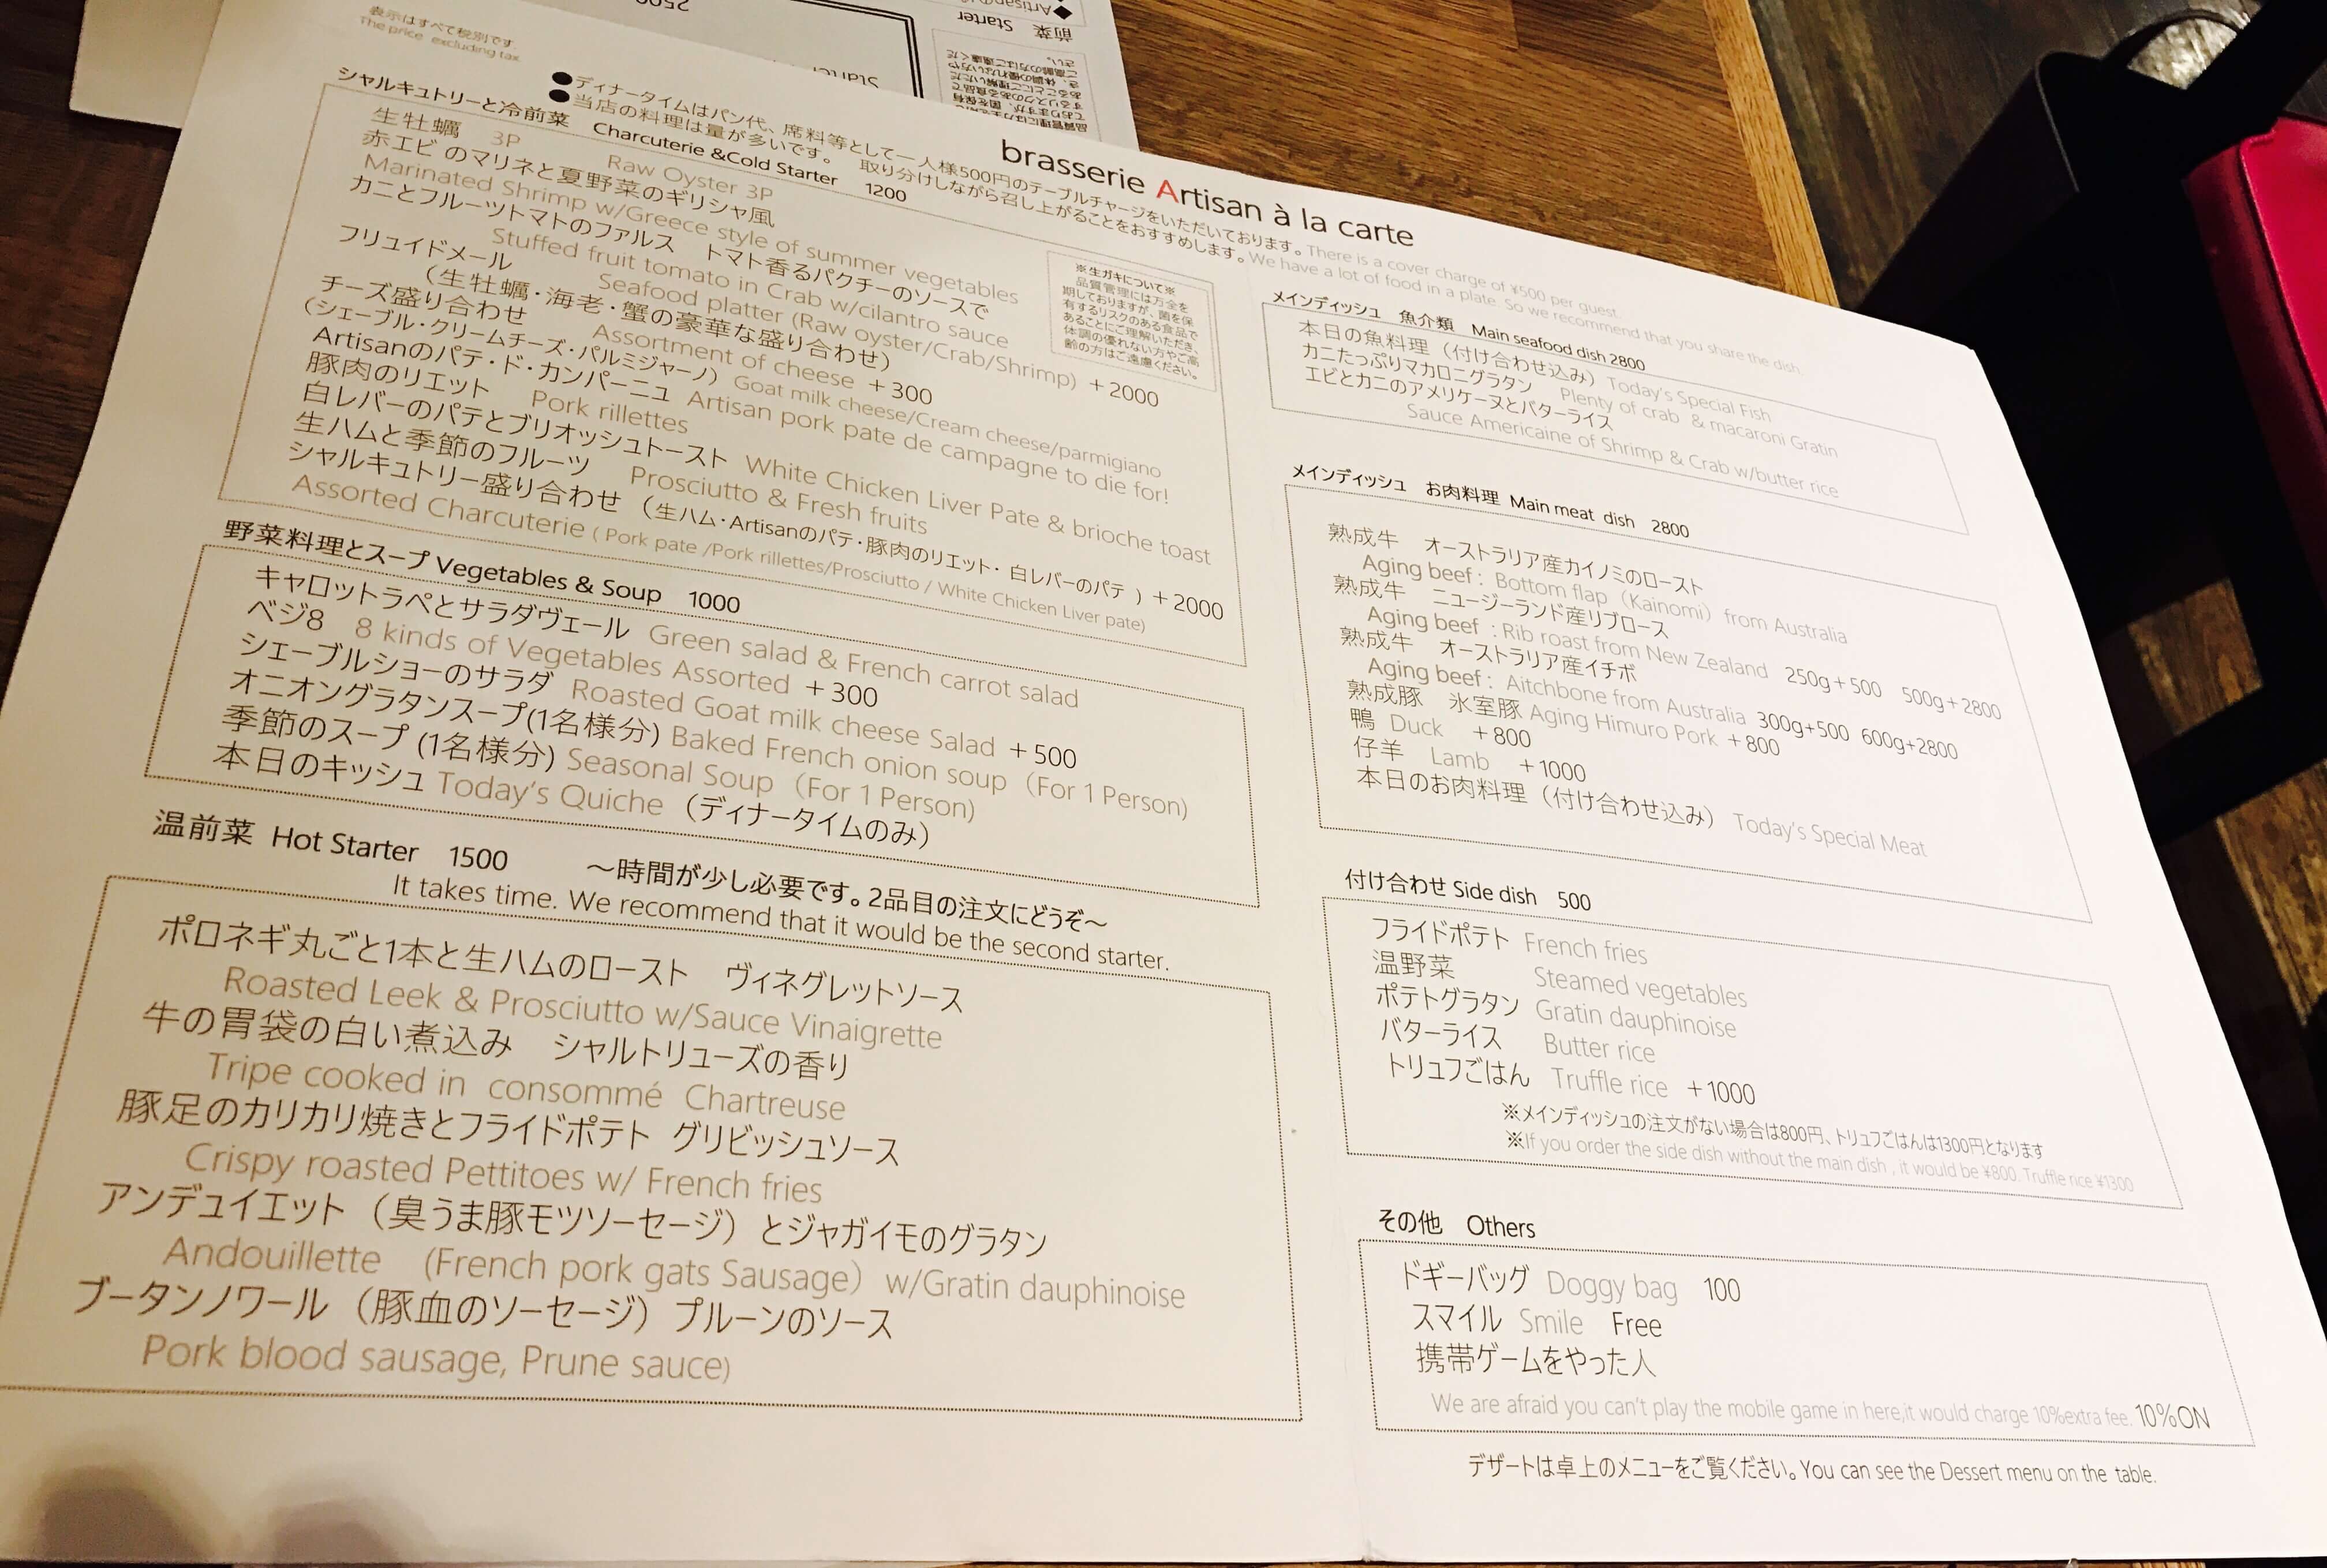 2500
Starter
前菜 Starter
表示はすべて税別です。
The price excluding tax.
brasserie Artisan à la carte
●ディナータイムはパン代、席料等として一人様500円のテーブルチャージをいただいております。There is a cover charge of ¥500 per guest.
●当店の料理は量が多いです。 取り分けしながら召し上がることをおすすめします。We have a lot of food in a plate. So we recommend that you share the dish.
シャルキュトリーと冷前菜 Charcuterie &Cold Starter 1200
生牡蠣 3P Raw Oyster 3P
赤エビ のマリネと夏野菜のギリシャ風
Marinated Shrimp w/Greece style of summer vegetables
カニとフルーツトマトのファルス トマト香るパクチーのソースで
Stuffed fruit tomato in Crab w/cilantro sauce
フリュイドメール Seafood platter (Raw oyster/Crab/Shrimp) +2000
(生牡蠣・海老・蟹の豪華な盛り合わせ)
チーズ盛り合わせ Assortment of cheese +300
(シェーブル・クリームチーズ・パルミジャーノ) Goat milk cheese/Cream cheese/parmigiano
Artisanのパテ・ド・カンパーニュ Artisan pork pate de campagne to die for!
豚肉のリエット Pork rillettes
白レバーのパテとブリオッシュトースト White Chicken Liver Pate & brioche toast
生ハムと季節のフルーツ Prosciutto & Fresh fruits
シャルキュトリー盛り合わせ (生ハム・Artisanのパテ・豚肉のリエット・ 白レバーのパテ ) +2000
Assorted Charcuterie ( Pork pate /Pork rillettes/Prosciutto / White Chicken Liver pate)
※生ガキについて※
品質管理には万全を
期しておりますが、菌を保
有するリスクのある食品で
あることにご理解いただき、
体調の優れない方やご高
齢の方はご遠慮ください。
野菜料理とスープ Vegetables & Soup 1000
キャロットラペとサラダヴェール Green salad & French carrot salad
ベジ8 8 kinds of Vegetables Assorted +300
シェーブルショーのサラダ Roasted Goat milk cheese Salad +500
オニオングラタンスープ(1名様分) Baked French onion soup (For 1 Person)
季節のスープ (1名様分) Seasonal Soup (For 1 Person)
本日のキッシュ Today's Quiche (ディナータイムのみ)
温前菜 Hot Starter 1500 ～時間が少し必要です。2品目の注文にどうぞ～
It takes time. We recommend that it would be the second starter.
ポロネギ丸ごと1本と生ハムのロースト ヴィネグレットソース
Roasted Leek & Prosciutto w/Sauce Vinaigrette
牛の胃袋の白い煮込み シャルトリューズの香り
Tripe cooked in consommé Chartreuse
豚足のカリカリ焼きとフライドポテト グリビッシュソース
Crispy roasted Pettitoes w/ French fries
アンデュイエット (臭うま豚モツソーセージ) とジャガイモのグラタン
Andouillette (French pork gats Sausage) w/Gratin dauphinoise
ブータンノワール (豚血のソーセージ) プルーンのソース
Pork blood sausage, Prune sauce)
メインディッシュ 魚介類 Main seafood dish 2800
本日の魚料理 (付け合わせ込み) Today's Special Fish
カニたっぷりマカロニグラタン Plenty of crab & macaroni Gratin
エビとカニのアメリケーヌとバターライス
Sauce Americaine of Shrimp & Crab w/butter rice
メインディッシュ お肉料理 Main meat dish 2800
熟成牛 オーストラリア産カイノミのロースト
Aging beef : Bottom flap (Kainomi) from Australia
熟成牛 ニュージーランド産リブロース
Aging beef : Rib roast from New Zealand 250g+500 500g+2800
熟成牛 オーストラリア産イチボ
Aging beef : Aitchbone from Australia 300g+500 600g+2800
熟成豚 氷室豚 Aging Himuro Pork +800
鴨 Duck +800
仔羊 Lamb +1000
本日のお肉料理 (付け合わせ込み) Today's Special Meat
付け合わせ Side dish 500
フライドポテト French fries
温野菜 Steamed vegetables
ポテトグラタン Gratin dauphinoise
バターライス Butter rice
トリュフごはん Truffle rice +1000
※メインディッシュの注文がない場合は800円、トリュフごはんは1300円となります
※If you order the side dish without the main dish , it would be ¥800. Truffle rice ¥1300
その他 Others
ドギーバッグ Doggy bag 100
スマイル Smile Free
携帯ゲームをやった人
We are afraid you can't play the mobile game in here,it would charge 10%extra fee. 10%ON
デザートは卓上のメニューをご覧ください。You can see the Dessert menu on the table.